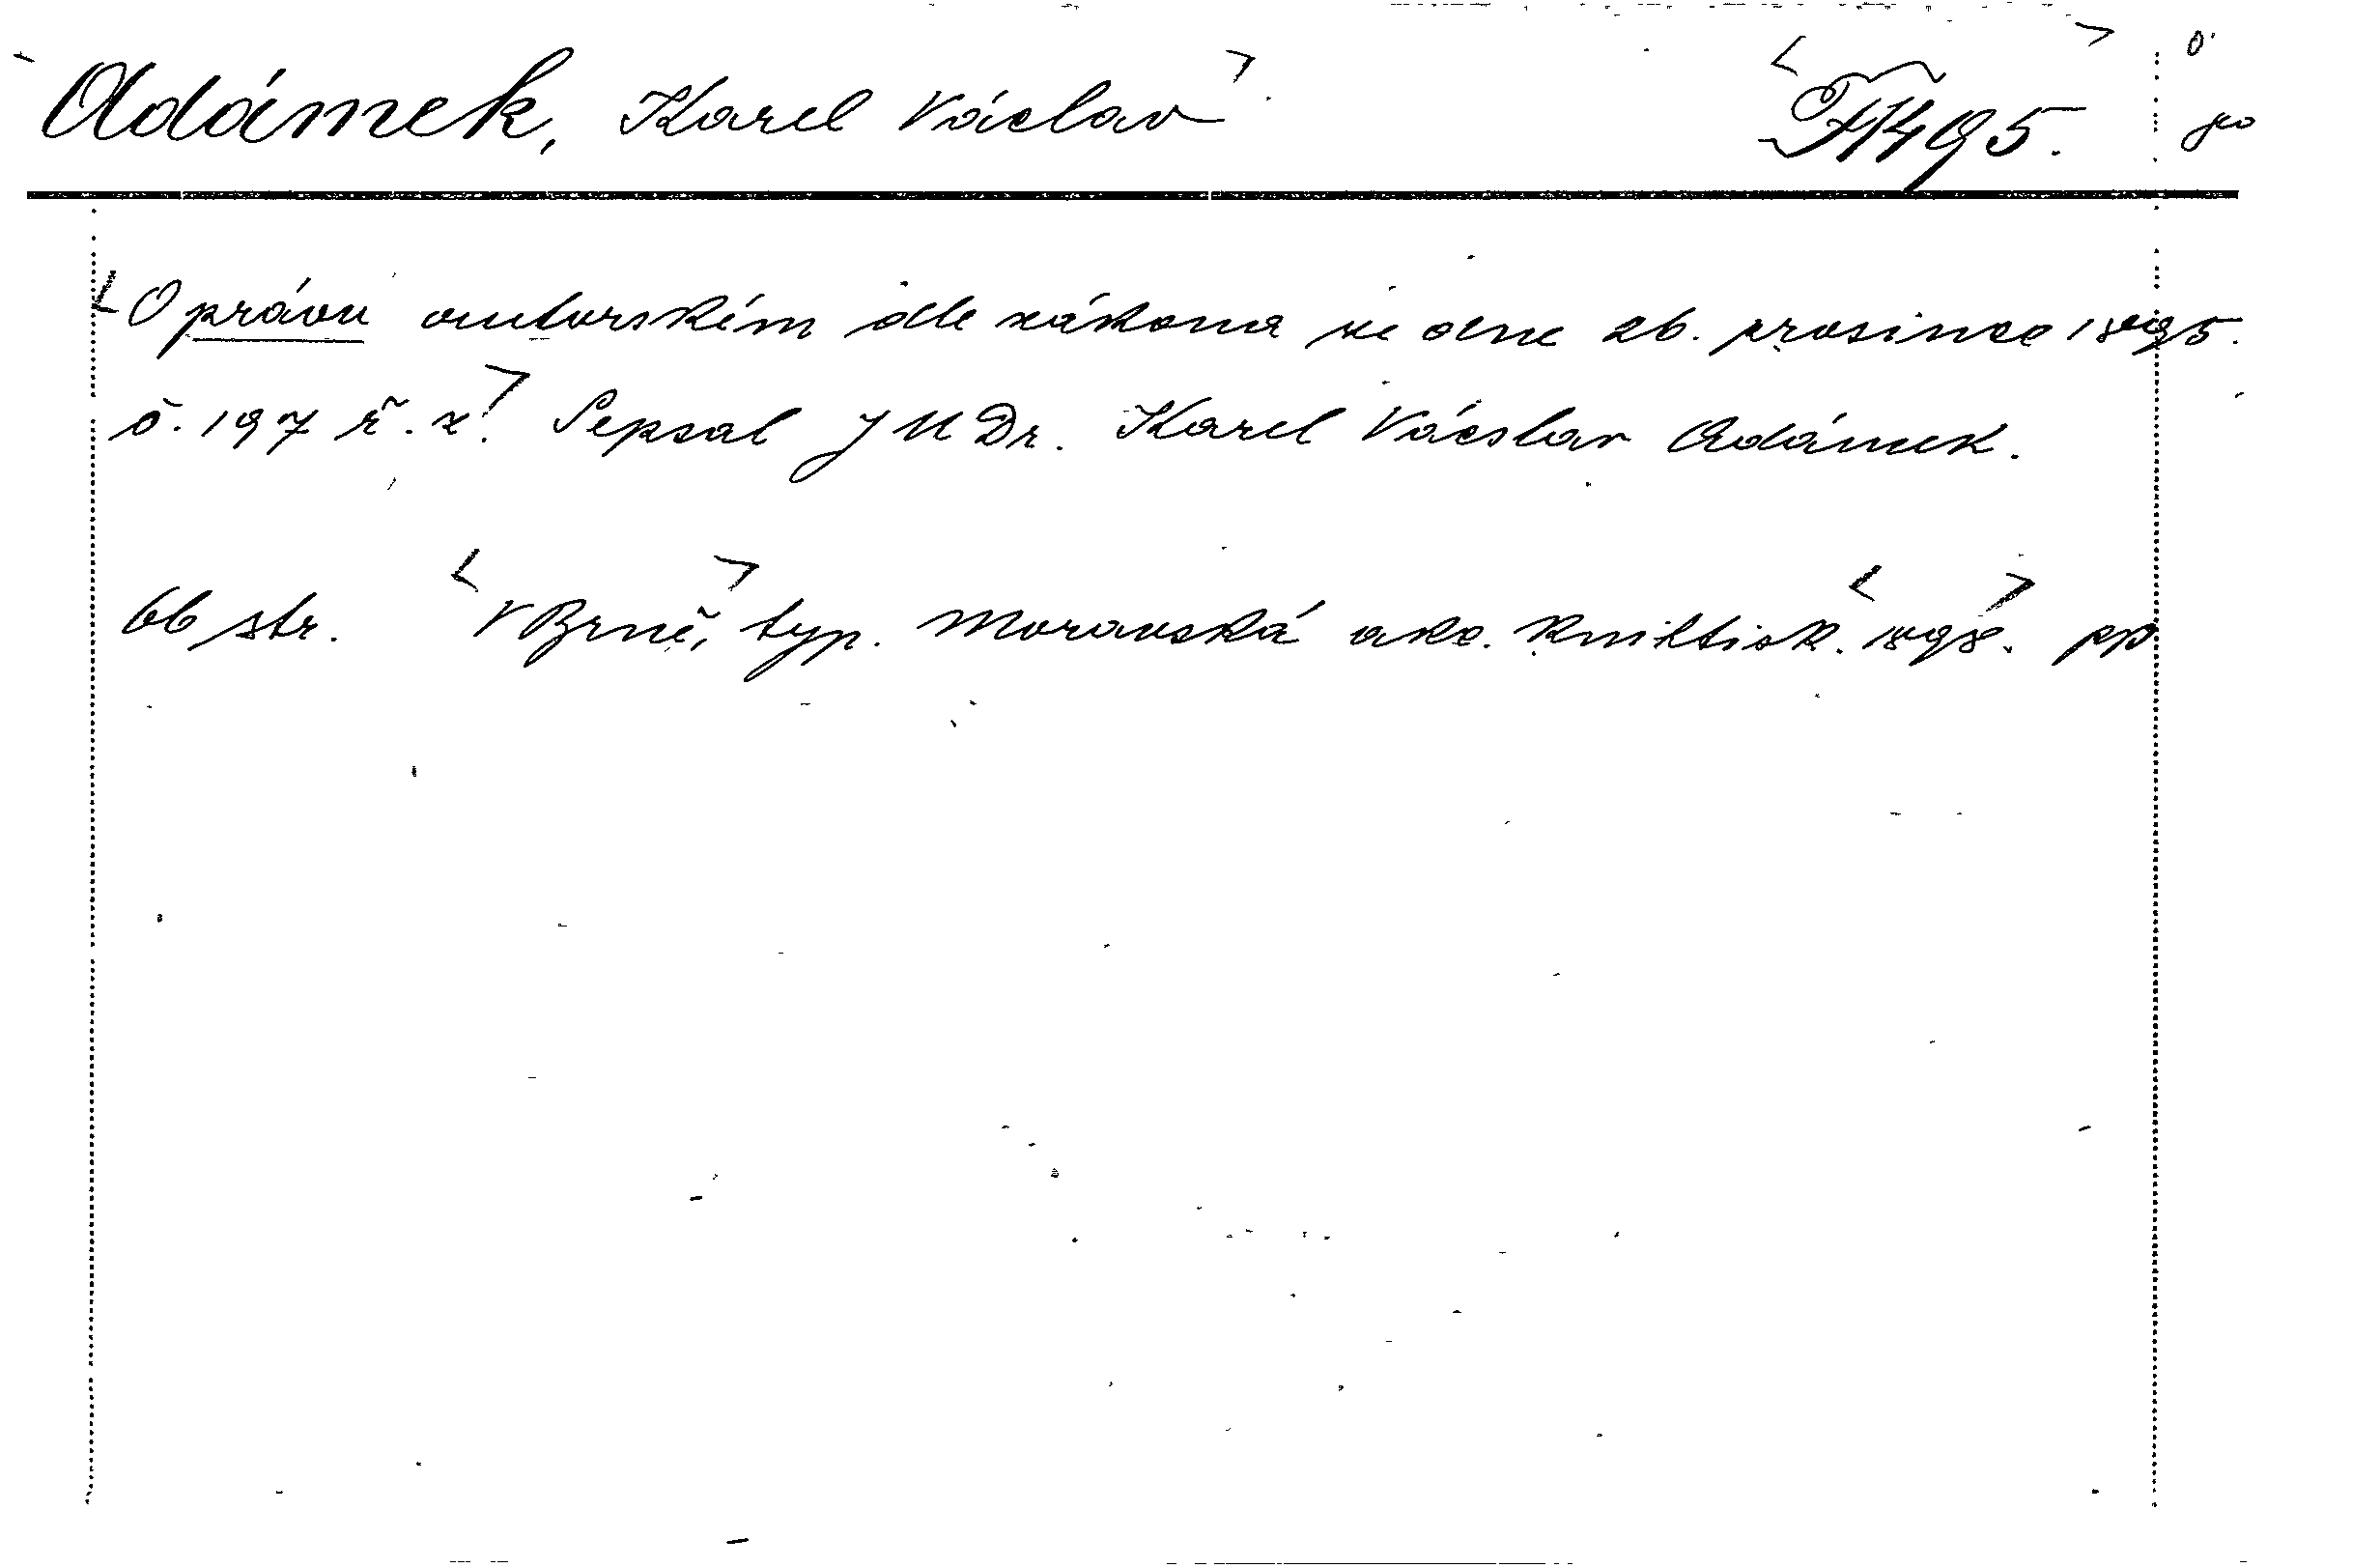 Adámek, Karel Václav
F1495.
O právu autorském dle zákona ze dne 26. prosince 1895.
č. 197 ř. z. Sepsal JUDr. Karel Vácslav Adámek.
66 str. V Brně, typ. Moravská akc. knihtisk. 1898. pp